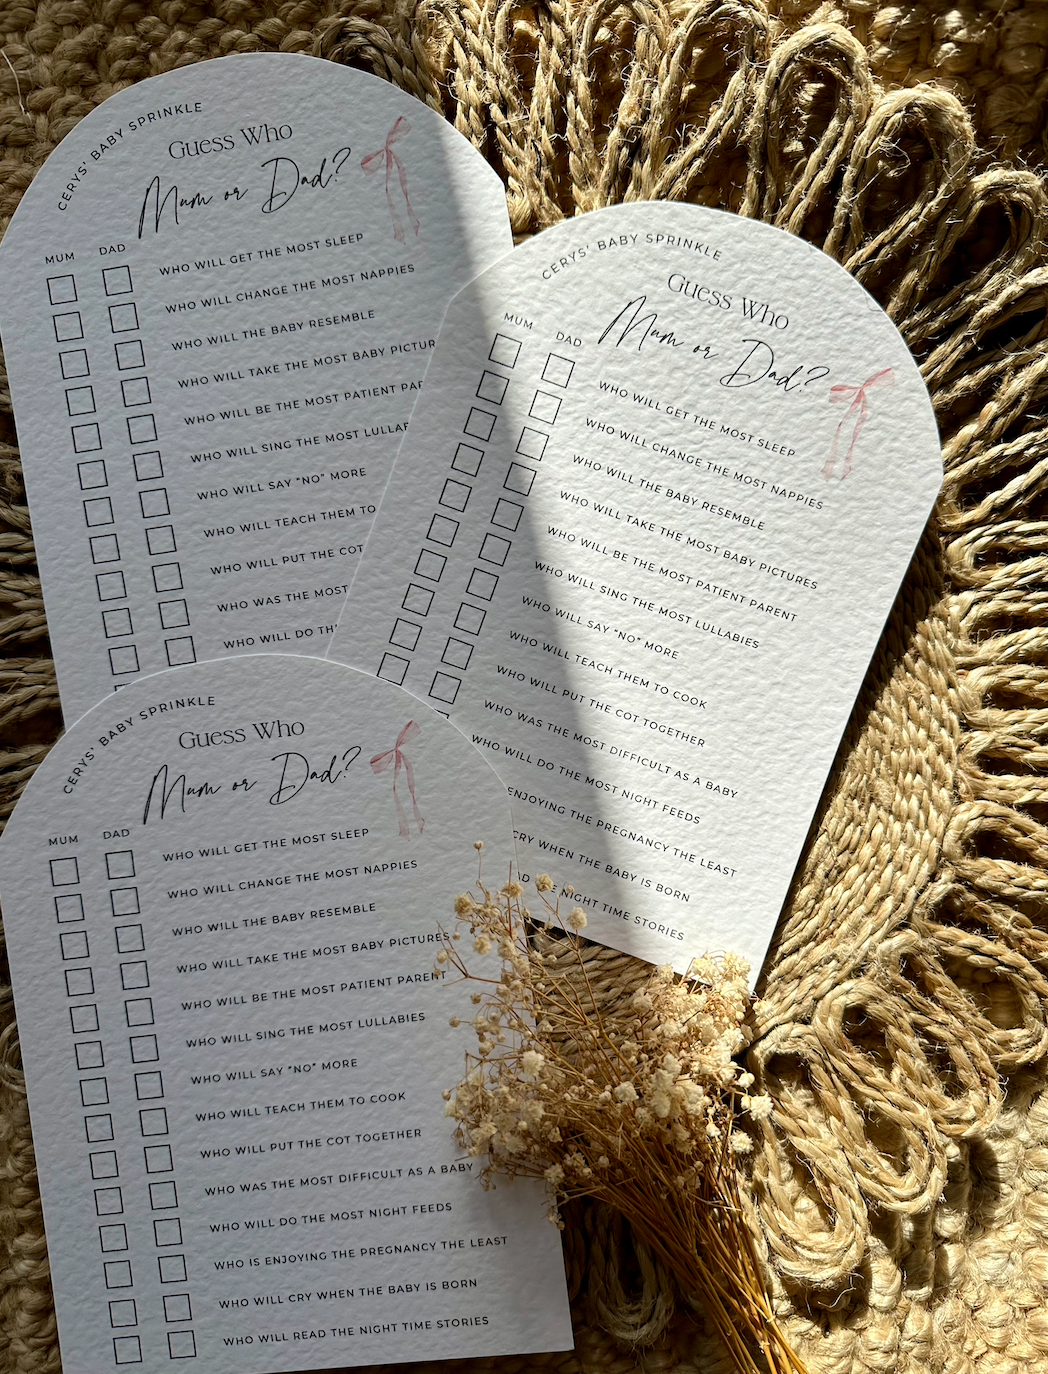 CERYS' BABY SPRINKLE
Guess Who
Mum or Dad?
MUM DAD
WHO WILL GET THE MOST SLEEP
WHO WILL CHANGE THE MOST NAPPIES
WHO WILL THE BABY RESEMBLE
WHO WILL TAKE THE MOST BABY PICTUR
WHO WILL BE THE MOST PATIENT PAR
WHO WILL SING THE MOST LULLAB
WHO WILL SAY "NO" MORE
WHO WILL TEACH THEM TO
WHO WILL PUT THE COT
WHO WAS THE MOST
WHO WILL DO TH
CERYS' BABY SPRINKLE
Guess Who
Mum or Dad?
MUM DAD
WHO WILL GET THE MOST SLEEP
WHO WILL CHANGE THE MOST NAPPIES
WHO WILL THE BABY RESEMBLE
WHO WILL TAKE THE MOST BABY PICTURES
WHO WILL BE THE MOST PATIENT PARENT
WHO WILL SING THE MOST LULLABIES
WHO WILL SAY "NO" MORE
WHO WILL TEACH THEM TO COOK
WHO WILL PUT THE COT TOGETHER
WHO WAS THE MOST DIFFICULT AS A BABY
WHO WILL DO THE MOST NIGHT FEEDS
ENJOYING THE PREGNANCY THE LEAST
CRY WHEN THE BABY IS BORN
NIGHT TIME STORIES
CERYS' BABY SPRINKLE
Guess Who
Mum or Dad?
MUM DAD
WHO WILL GET THE MOST SLEEP
WHO WILL CHANGE THE MOST NAPPIES
WHO WILL THE BABY RESEMBLE
WHO WILL TAKE THE MOST BABY PICTURES
WHO WILL BE THE MOST PATIENT PARENT
WHO WILL SING THE MOST LULLABIES
WHO WILL SAY "NO" MORE
WHO WILL TEACH THEM TO COOK
WHO WILL PUT THE COT TOGETHER
WHO WAS THE MOST DIFFICULT AS A BABY
WHO WILL DO THE MOST NIGHT FEEDS
WHO IS ENJOYING THE PREGNANCY THE LEAST
WHO WILL CRY WHEN THE BABY IS BORN
WHO WILL READ THE NIGHT TIME STORIES